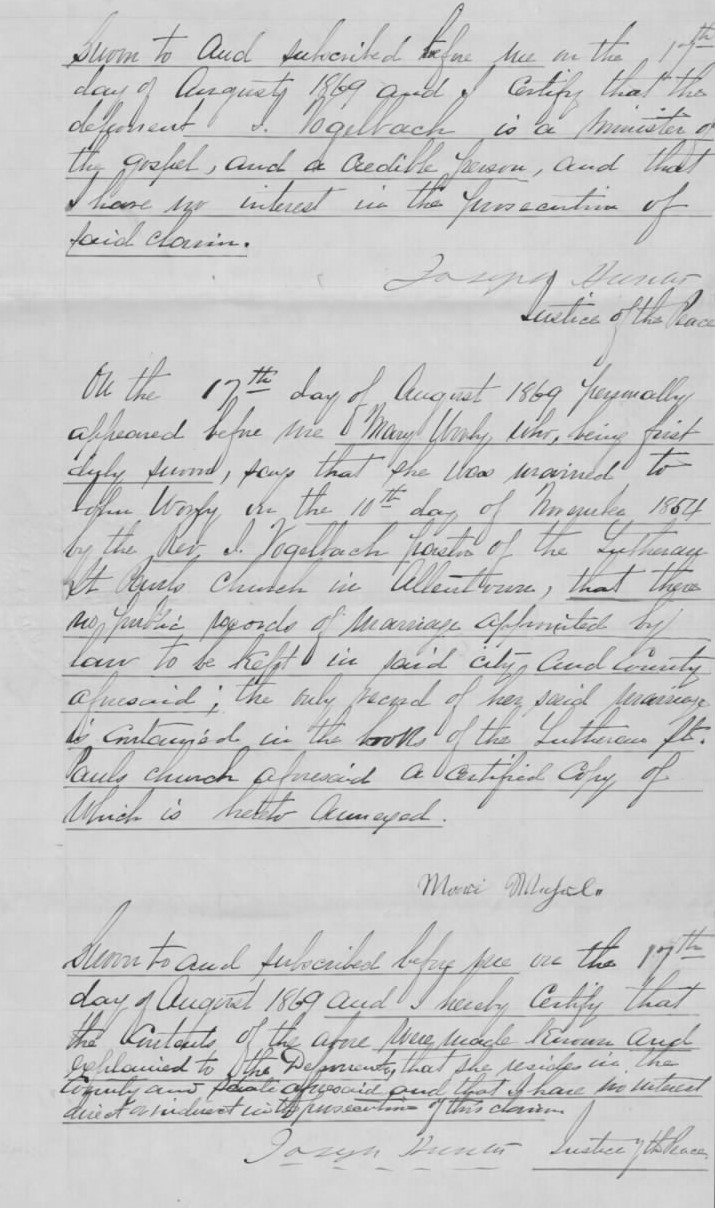 Sworn to and subscribed before me on the 17th
day of August 1869 and I certify that the
deponent I. Vogelbach is a minister of
the gospel, and a credible person, and that
I have no interest in the prosecution of
said claim.
Joseph
Justice of the Peace
On the 17th day of August 1869 personally
appeared before me Mary who, being first
duly sworn, says that she was married to
John on the 10th day of November 1854
by the Rev. I. Vogelbach pastor of the Lutheran
St Pauls church in Allentown, that there
no public records of marriage appointed by
law to be kept in said city and county
aforesaid; the only record of her said marriage
is contained in the books of the Lutheran St.
Pauls church aforesaid a certified copy of
which is hereto annexed.
Sworn to and subscribed before me on the 17th
day of August 1869 and I hereby certify that
the contents of the above were made known and
explained to the Deponent, that she resides in the
County and State aforesaid and that I have no interest
direct or indirect in the prosecution of this claim.
Joseph Justice of the Peace